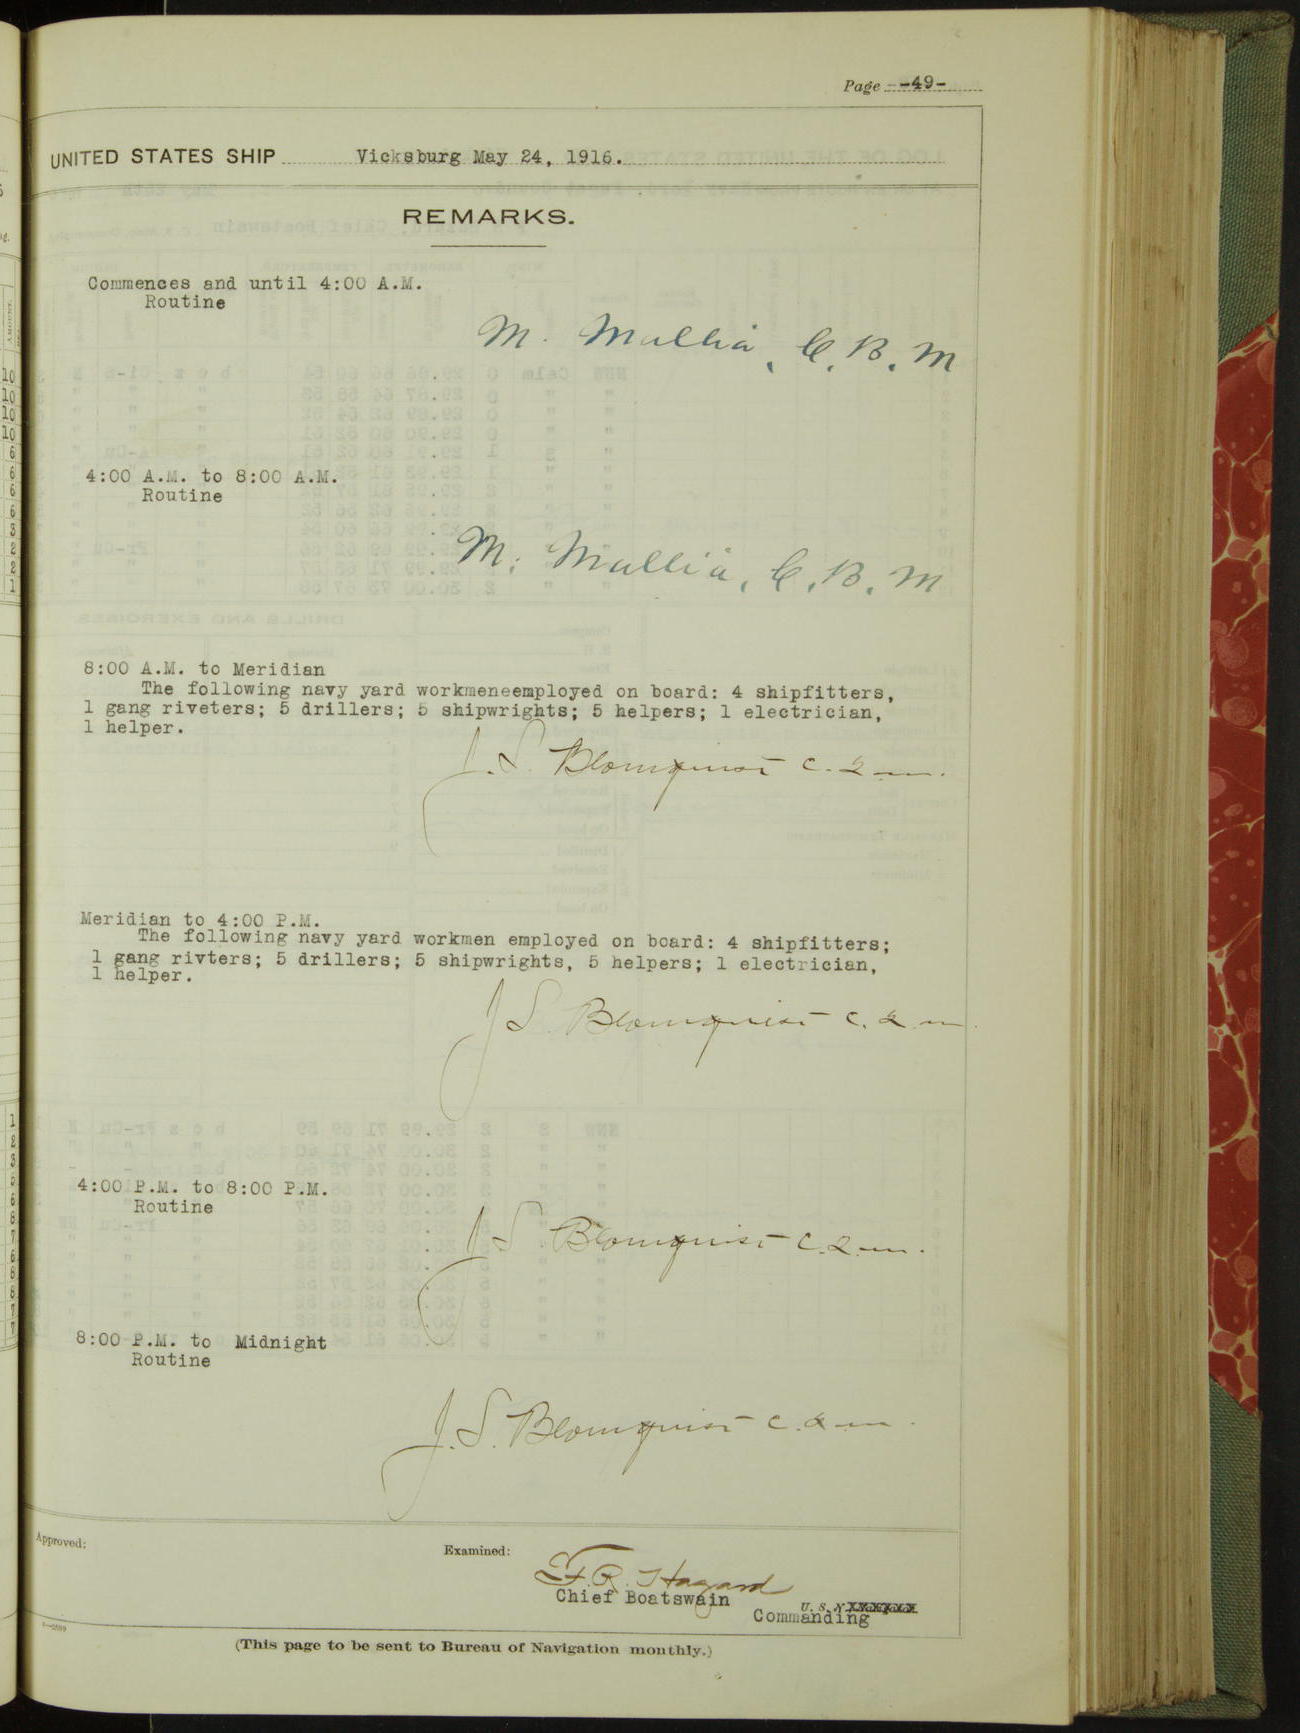 Page -49-
UNITED STATES SHIP Vicksburg May 24, 1916.
REMARKS.
Commences and until 4:00 A.M.
Routine
M. Mallia, C. B. M
4:00 A.M. to 8:00 A.M.
Routine
M. Mallia, C. B. M
8:00 A.M. to Meridian
The following navy yard workmeneemployed on board: 4 shipfitters,
1 gang riveters; 5 drillers; 5 shipwrights; 5 helpers; 1 electrician,
1 helper.
J. S. Blomquist C. 2 m.
Meridian to 4:00 P.M.
The following navy yard workmen employed on board: 4 shipfitters;
1 gang rivters; 5 drillers; 5 shipwrights, 5 helpers; 1 electrician,
1 helper.
J S. Blomquist C. 2 m
4:00 P.M. to 8:00 P.M.
Routine
J S Blomquist C. 2. m.
8:00 P.M. to Midnight
Routine
J. S. Blomquist C. 2 m.
Approved:
Examined:
F. R. Hazard
Chief Boatswain
U. S. N
Commanding
(This page to be sent to Bureau of Navigation monthly.)